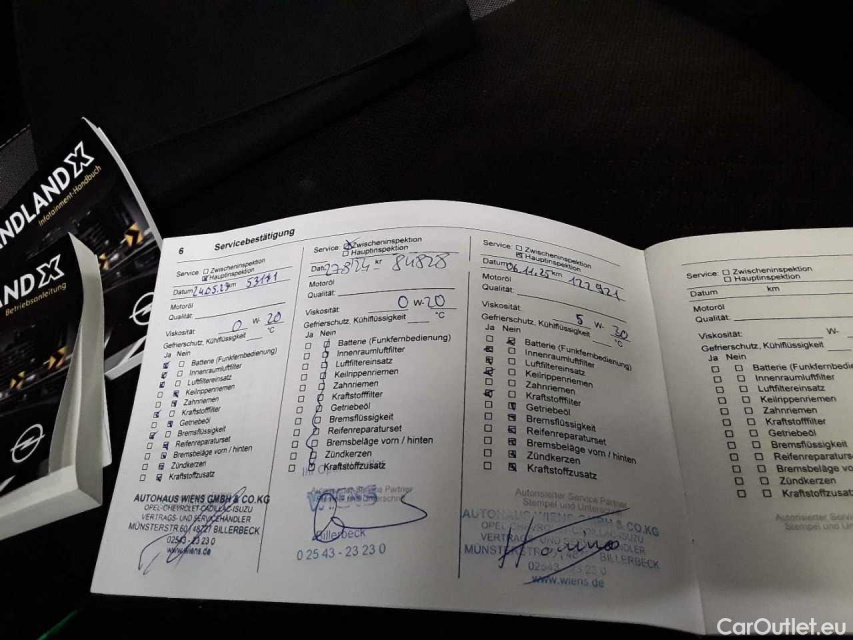 NDLAND X
Infotainment-Handbuch
AND X
Betriebsanleitung
6 Servicebestätigung
Service: Zwischeninspektion
Hauptinspektion
Datum km 53191
Motoröl
Qualität:
Viskosität: 0 W- 20
Gefrierschutz, Kühlflüssigkeit °C
Ja Nein
Batterie (Funkfernbedienung)
Innenraumluftfilter
Luftfiltereinsatz
Keilrippenriemen
Zahnriemen
Kraftstofffilter
Getriebeöl
Bremsflüssigkeit
Reifenreparaturset
Bremsbeläge vorn / hinten
Zündkerzen
Kraftstoffzusatz
AUTOHAUS WIENS GMBH & CO.KG
OPEL-CHEVROLET-CADILLAC-ISUZU
VERTRAGS- UND SERVICEHÄNDLER
MÜNSTERSTR. 60, 48727 BILLERBECK
02543 - 23 23 0
www.wiens.de
Service: Zwischeninspektion
Hauptinspektion
84828
Motoröl
Qualität:
0 W-20
Gefrierschutz, Kühlflüssigkeit °C
Ja Nein
Batterie (Funkfernbedienung)
Innenraumluftfilter
Luftfiltereinsatz
Keilrippenriemen
Zahnriemen
Kraftstofffilter
Getriebeöl
Bremsflüssigkeit
Reifenreparaturset
Bremsbeläge vorn / hinten
Zündkerzen
Kraftstoffzusatz
Autorisierter Service Partner
WIENS
Billerbeck
0 25 43 - 23 23 0
Service: Zwischeninspektion
Hauptinspektion
Datum 06.11.25 km 122921
Motoröl
Qualität:
Viskosität: 5 W- 30
Gefrierschutz, Kühlflüssigkeit °C
Ja Nein
Batterie (Funkfernbedienung)
Innenraumluftfilter
Luftfiltereinsatz
Keilrippenriemen
Zahnriemen
Kraftstofffilter
Getriebeöl
Bremsflüssigkeit
Reifenreparaturset
Bremsbeläge vorn / hinten
Zündkerzen
Kraftstoffzusatz
Autorisierter Service Partner
Stempel und Unterschrift
AUTOHAUS WIENS GMBH & CO.KG
MÜNSTERSTR. BILLERBECK
02543 - 23 23 0
www.wiens.de
Service: Zwischeninspektion
Hauptinspektion
Datum km
Motoröl
Qualität:
Viskosität: W-
Gefrierschutz, Kühlflüssigkeit
Ja Nein
Batterie (Funkfernbedie
Innenraumluftfilter
Luftfiltereinsatz
Keilrippenriemen
Zahnriemen
Kraftstofffilter
Getriebeöl
Bremsflüssigkeit
Reifenreparaturs
Bremsbeläge vo
Zündkerzen
Kraftstoffzusat
Autorisierter Service
Stempel und Un
CarOutlet.eu